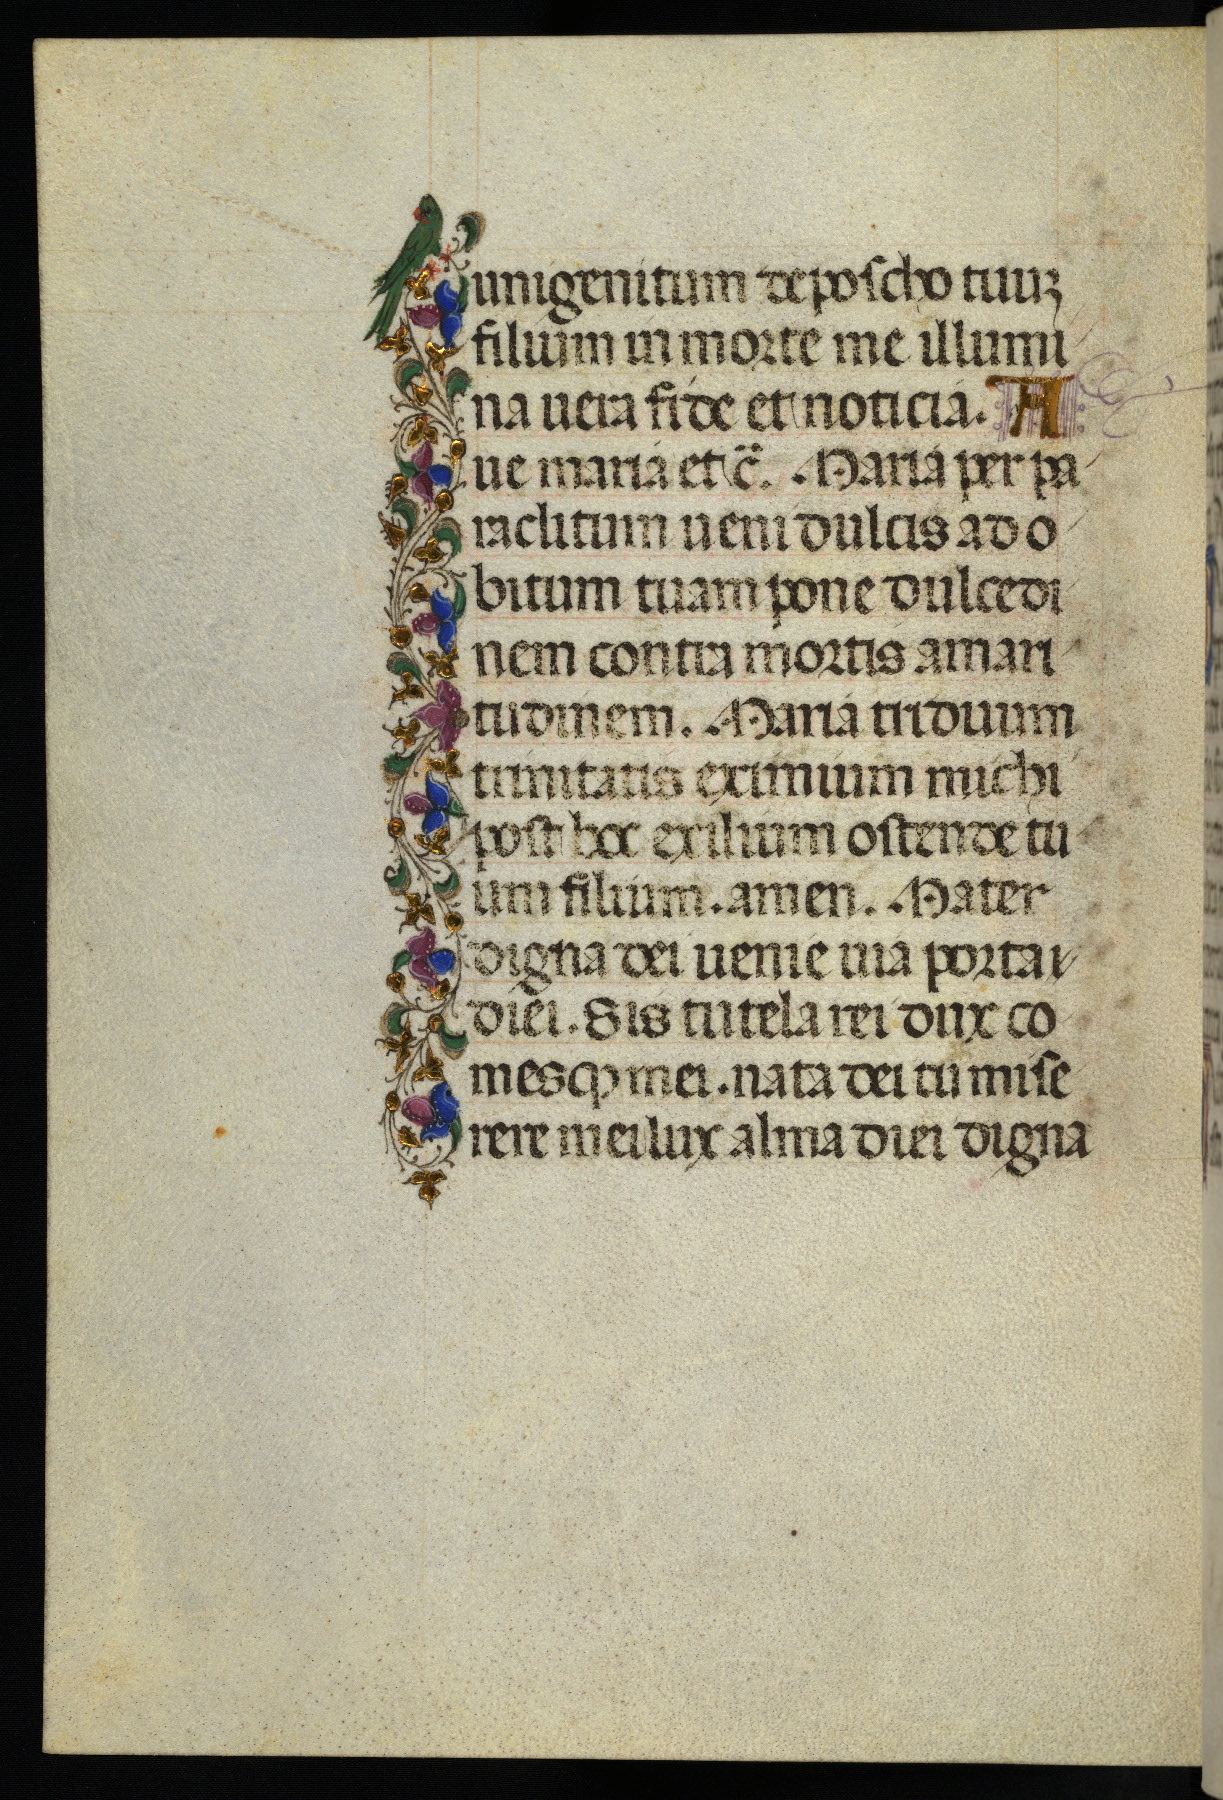 unigenitum deposcho tuuꝫ
filium in morte me illumi
na uera fide et noticia. A
ue maria et c̃. Maria per pa
raclitum ueni dulcis ad o
bitum tuam pone dulcedi
nem contra mortis amari
tudinem. Maria triduum
trinitatis eximium michi
post hoc exilium ostende tu
um filium. amen. Mater
digna dei uenie uia porta
diei. Sis tutela rei dux co
mesqꝫ mei. nata dei tu mise
rere mei lux alma diei digna